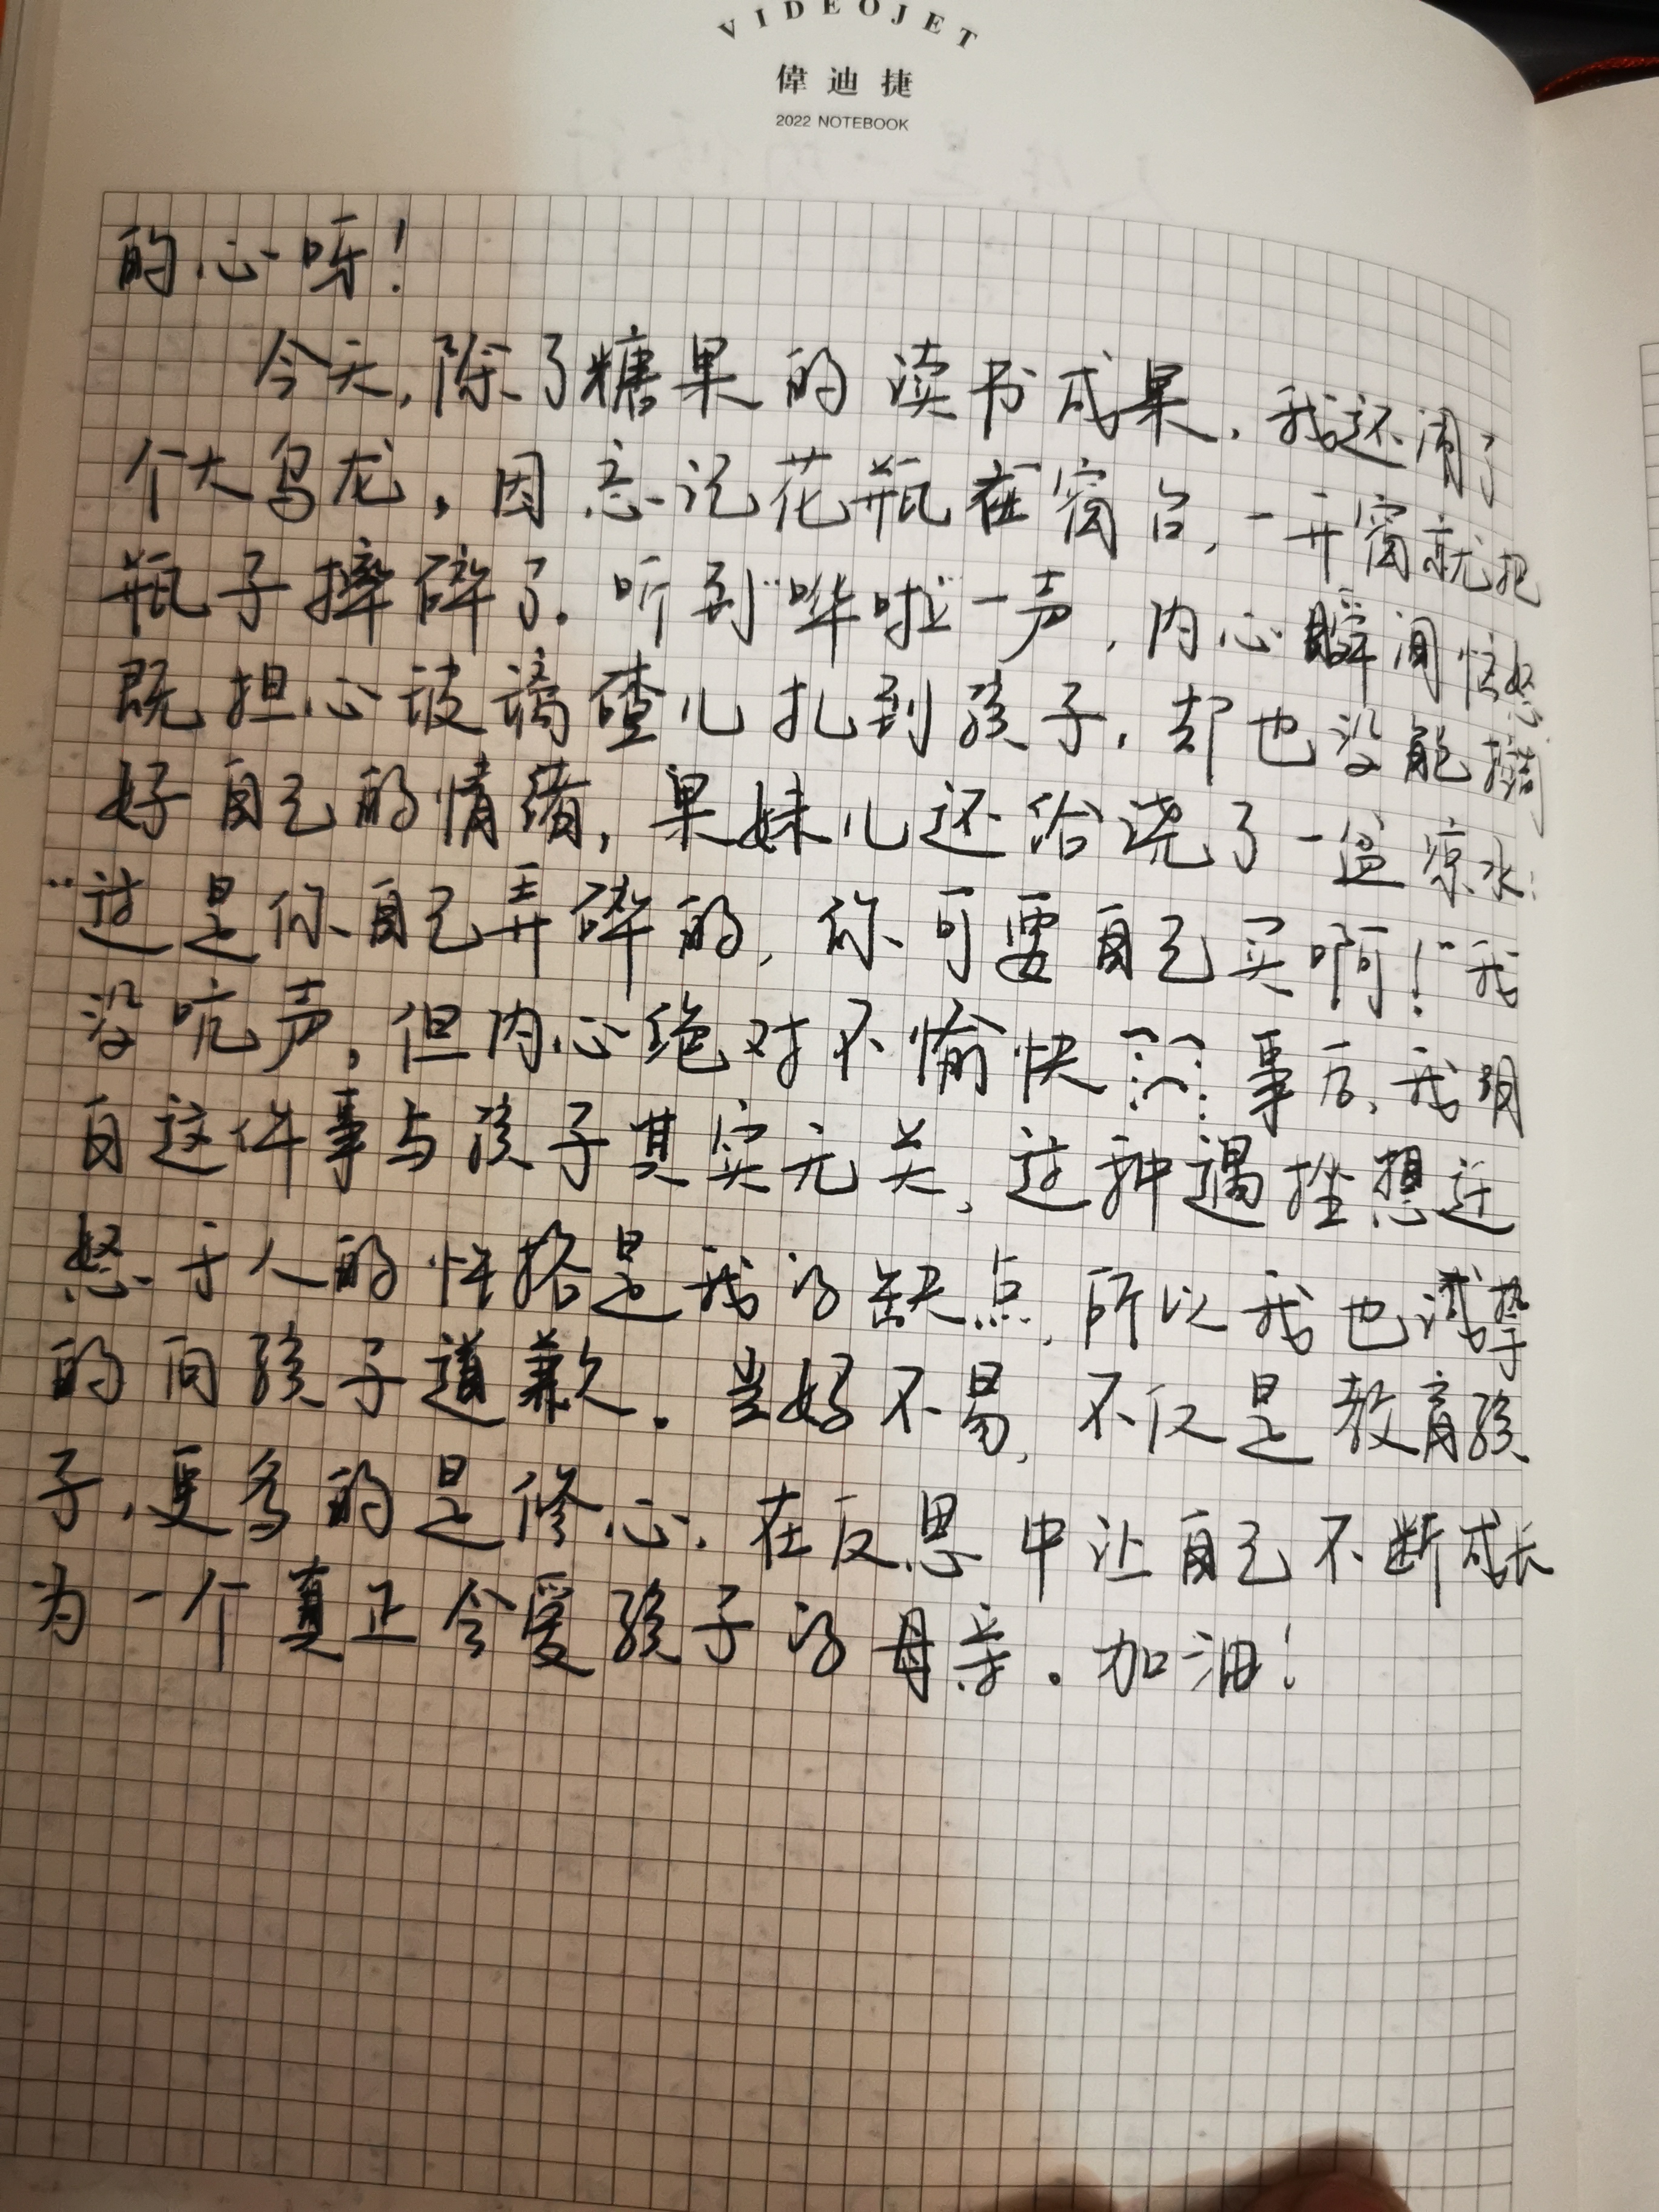 VIDEOJET
偉迪捷
2022 NOTEBOOK
的心呀！
今天，除了糖果的读书成果，我还闹了
个大乌龙，因忘记花瓶在窗台，一开窗就把
瓶子摔碎了。听到“哗啦”一声，内心瞬间恼怒
既担心玻璃碴儿扎到孩子，却也没能控制
好自己的情绪，果妹儿还给浇了一盆凉水：
“这是你自己弄碎的，你可要自己买啊！”我
没吭声，但内心绝对不愉快……事后，我明
白这件事与孩子其实无关，这种遇挫想迁
怒于人的性格是我的缺点，所以我也诚挚
的向孩子道歉。当妈不易，不仅是教育孩
子，更多的是修心，在反思中让自己不断成长
为一个真正会爱孩子的母亲。加油！